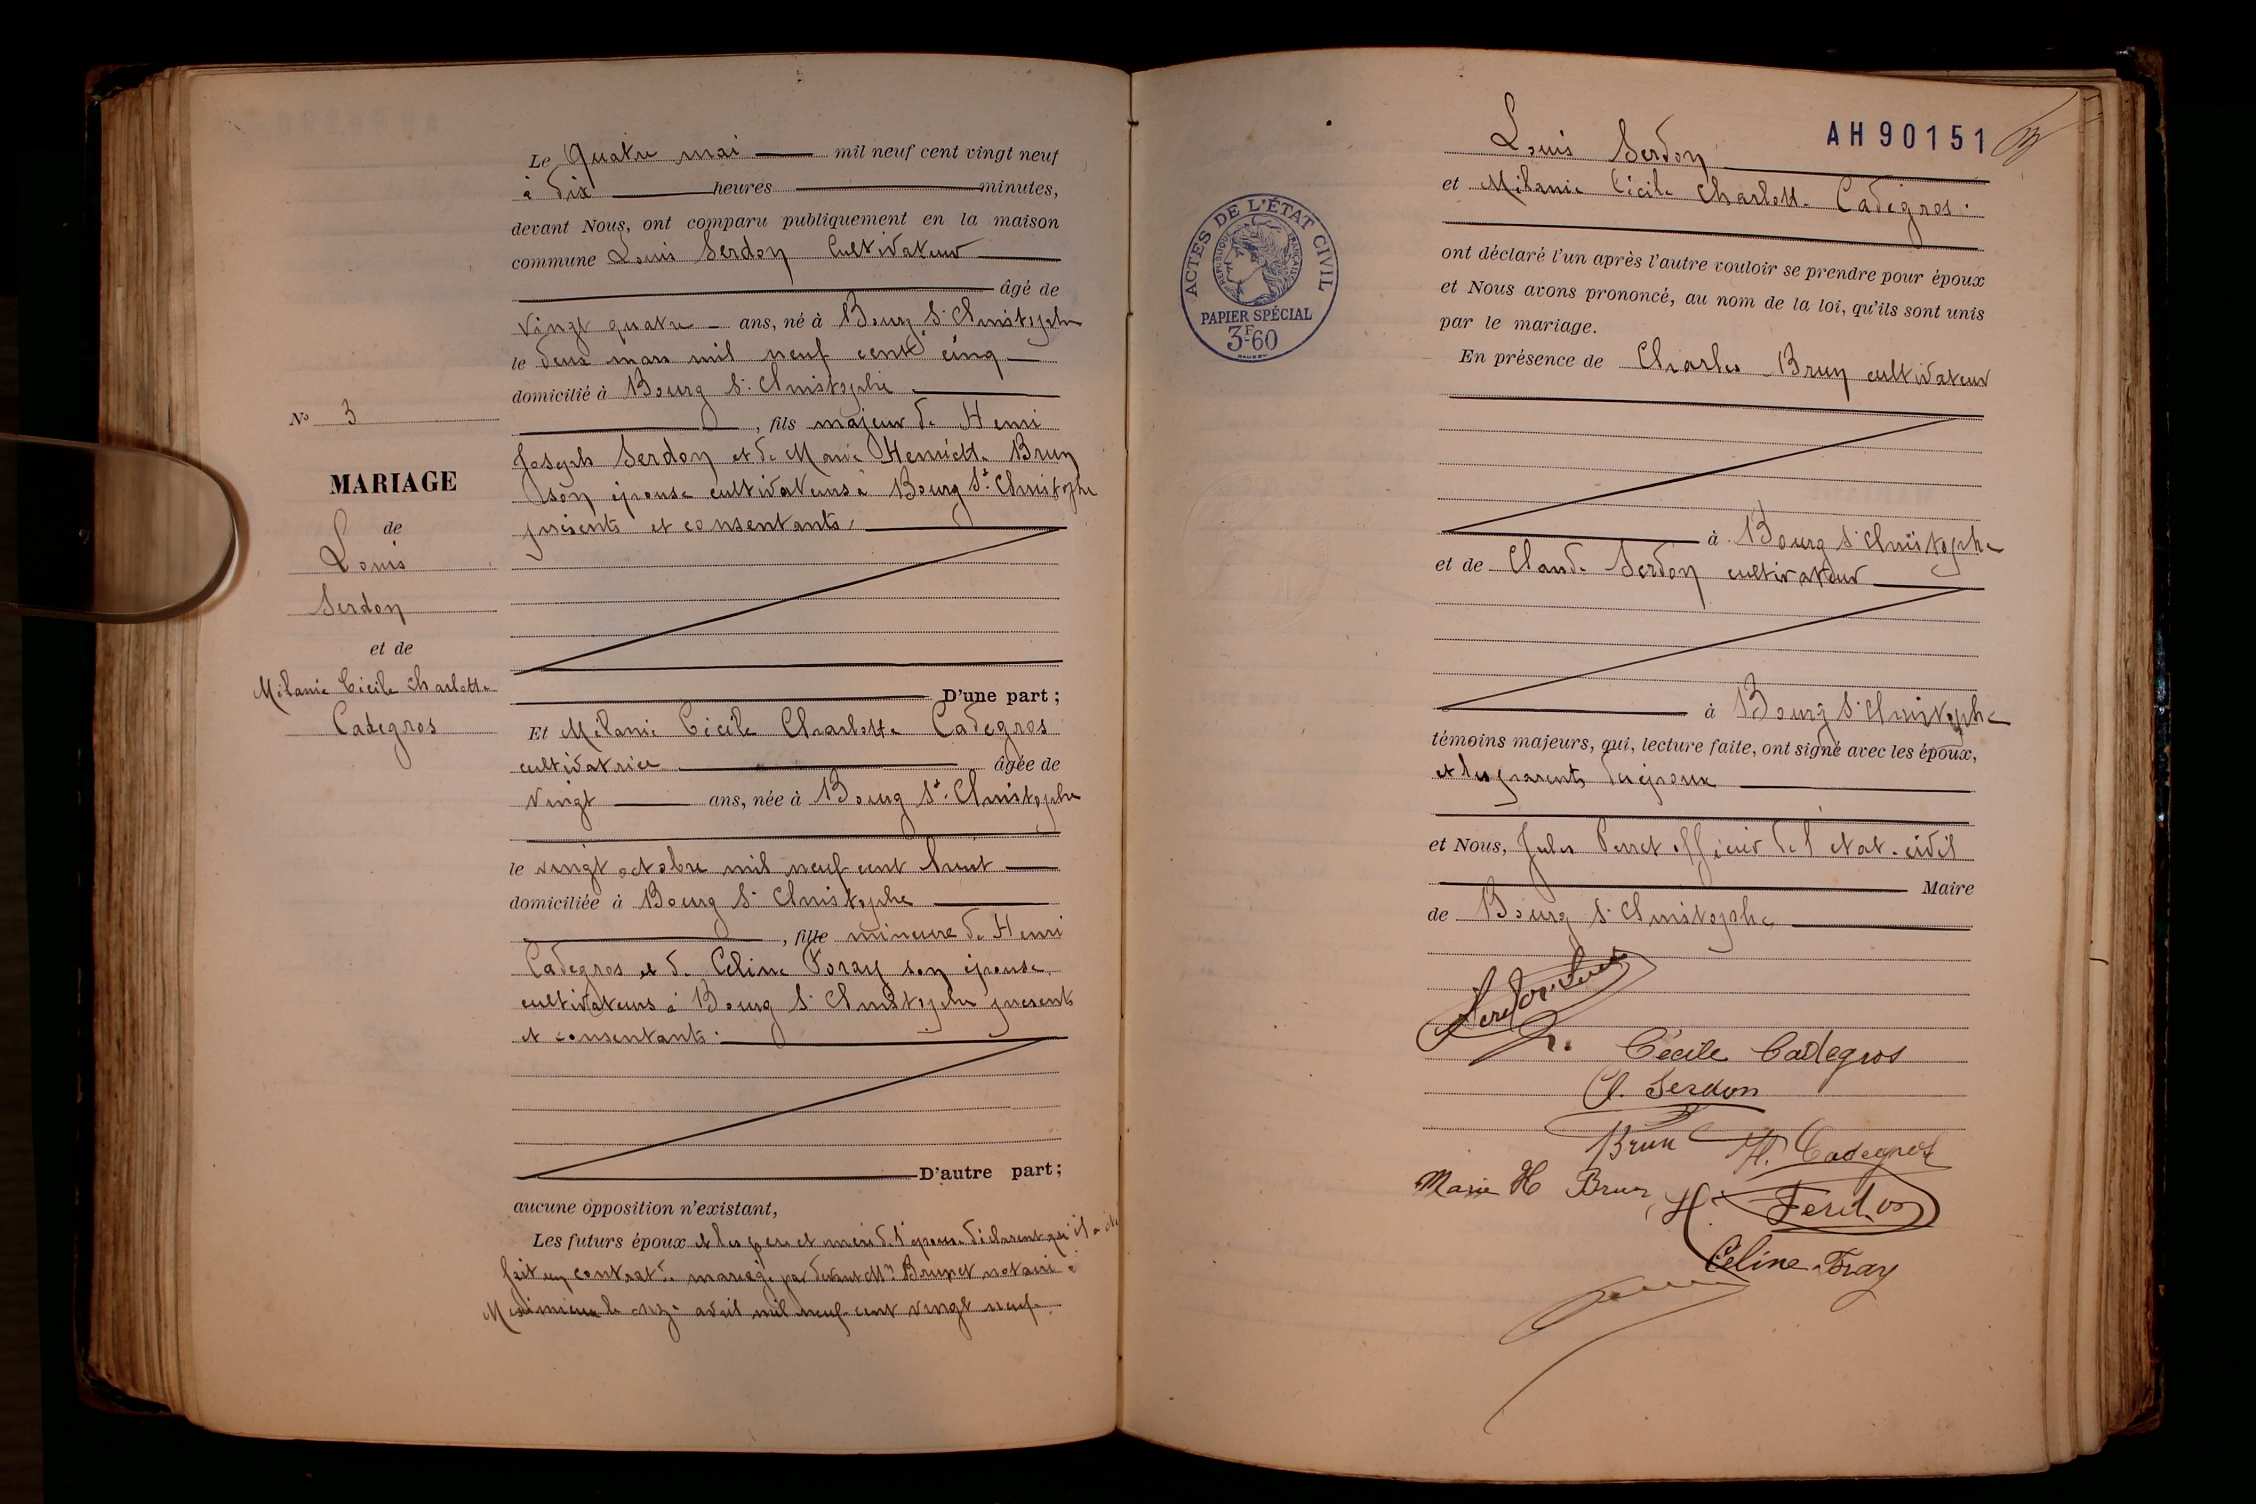 Le Quatre mai mil neuf cent vingt neuf
à dix heures minutes,
devant Nous, ont comparu publiquement en la maison
commune Louis Serdon Cultivateur
âgé de
vingt quatre ans, né à Bourg St Christophe
le deux mars mil neuf cent cinq
domicilié à Bourg St Christophe
, fils majeur de Henri
Joseph Serdon et de Marie Henriette Brun
son épouse cultivateurs à Bourg St Christophe
présents et consentants.
D'une part ;
Et Mélanie Cécile Charlotte Cadegros
cultivatrice âgée de
vingt ans, née à Bourg St Christophe
le vingt octobre mil neuf cent huit
domiciliée à Bourg St Christophe
, fille mineure de Henri
Cadegros et de Céline Foray son épouse
cultivateurs à Bourg St Christophe présents
et consentants.
D'autre part ;
aucune opposition n'existant,
Les futurs époux et les père et mère de l'épouse déclarent qu'il a été
fait un contrat de mariage par devant Me Brunet notaire à
Meximieux le onze avril mil neuf cent vingt neuf.
No 3
MARIAGE
de
Louis
Serdon
et de
Mélanie Cécile Charlotte
Cadegros
AH90151
Louis Serdon
et Mélanie Cécile Charlotte Cadegros.
ont déclaré l'un après l'autre vouloir se prendre pour époux
et Nous avons prononcé, au nom de la loi, qu'ils sont unis
par le mariage.
En présence de Charles Brun cultivateur
à Bourg St Christophe
et de Claude Serdon cultivateur
à Bourg St Christophe
témoins majeurs, qui, lecture faite, ont signé avec les époux,
et les parents des époux
et Nous, Jules Perret officier de l'état-civil
Maire
de Bourg St Christophe
ACTES DE L'ÉTAT CIVIL
RÉPUBLIQUE FRANÇAISE
PAPIER SPÉCIAL
3F60
Serdon Louis
Cécile Cadegros
Cl. Serdon
Brun H. Cadegros
Marie H Brun H. Serdon
Céline Foray